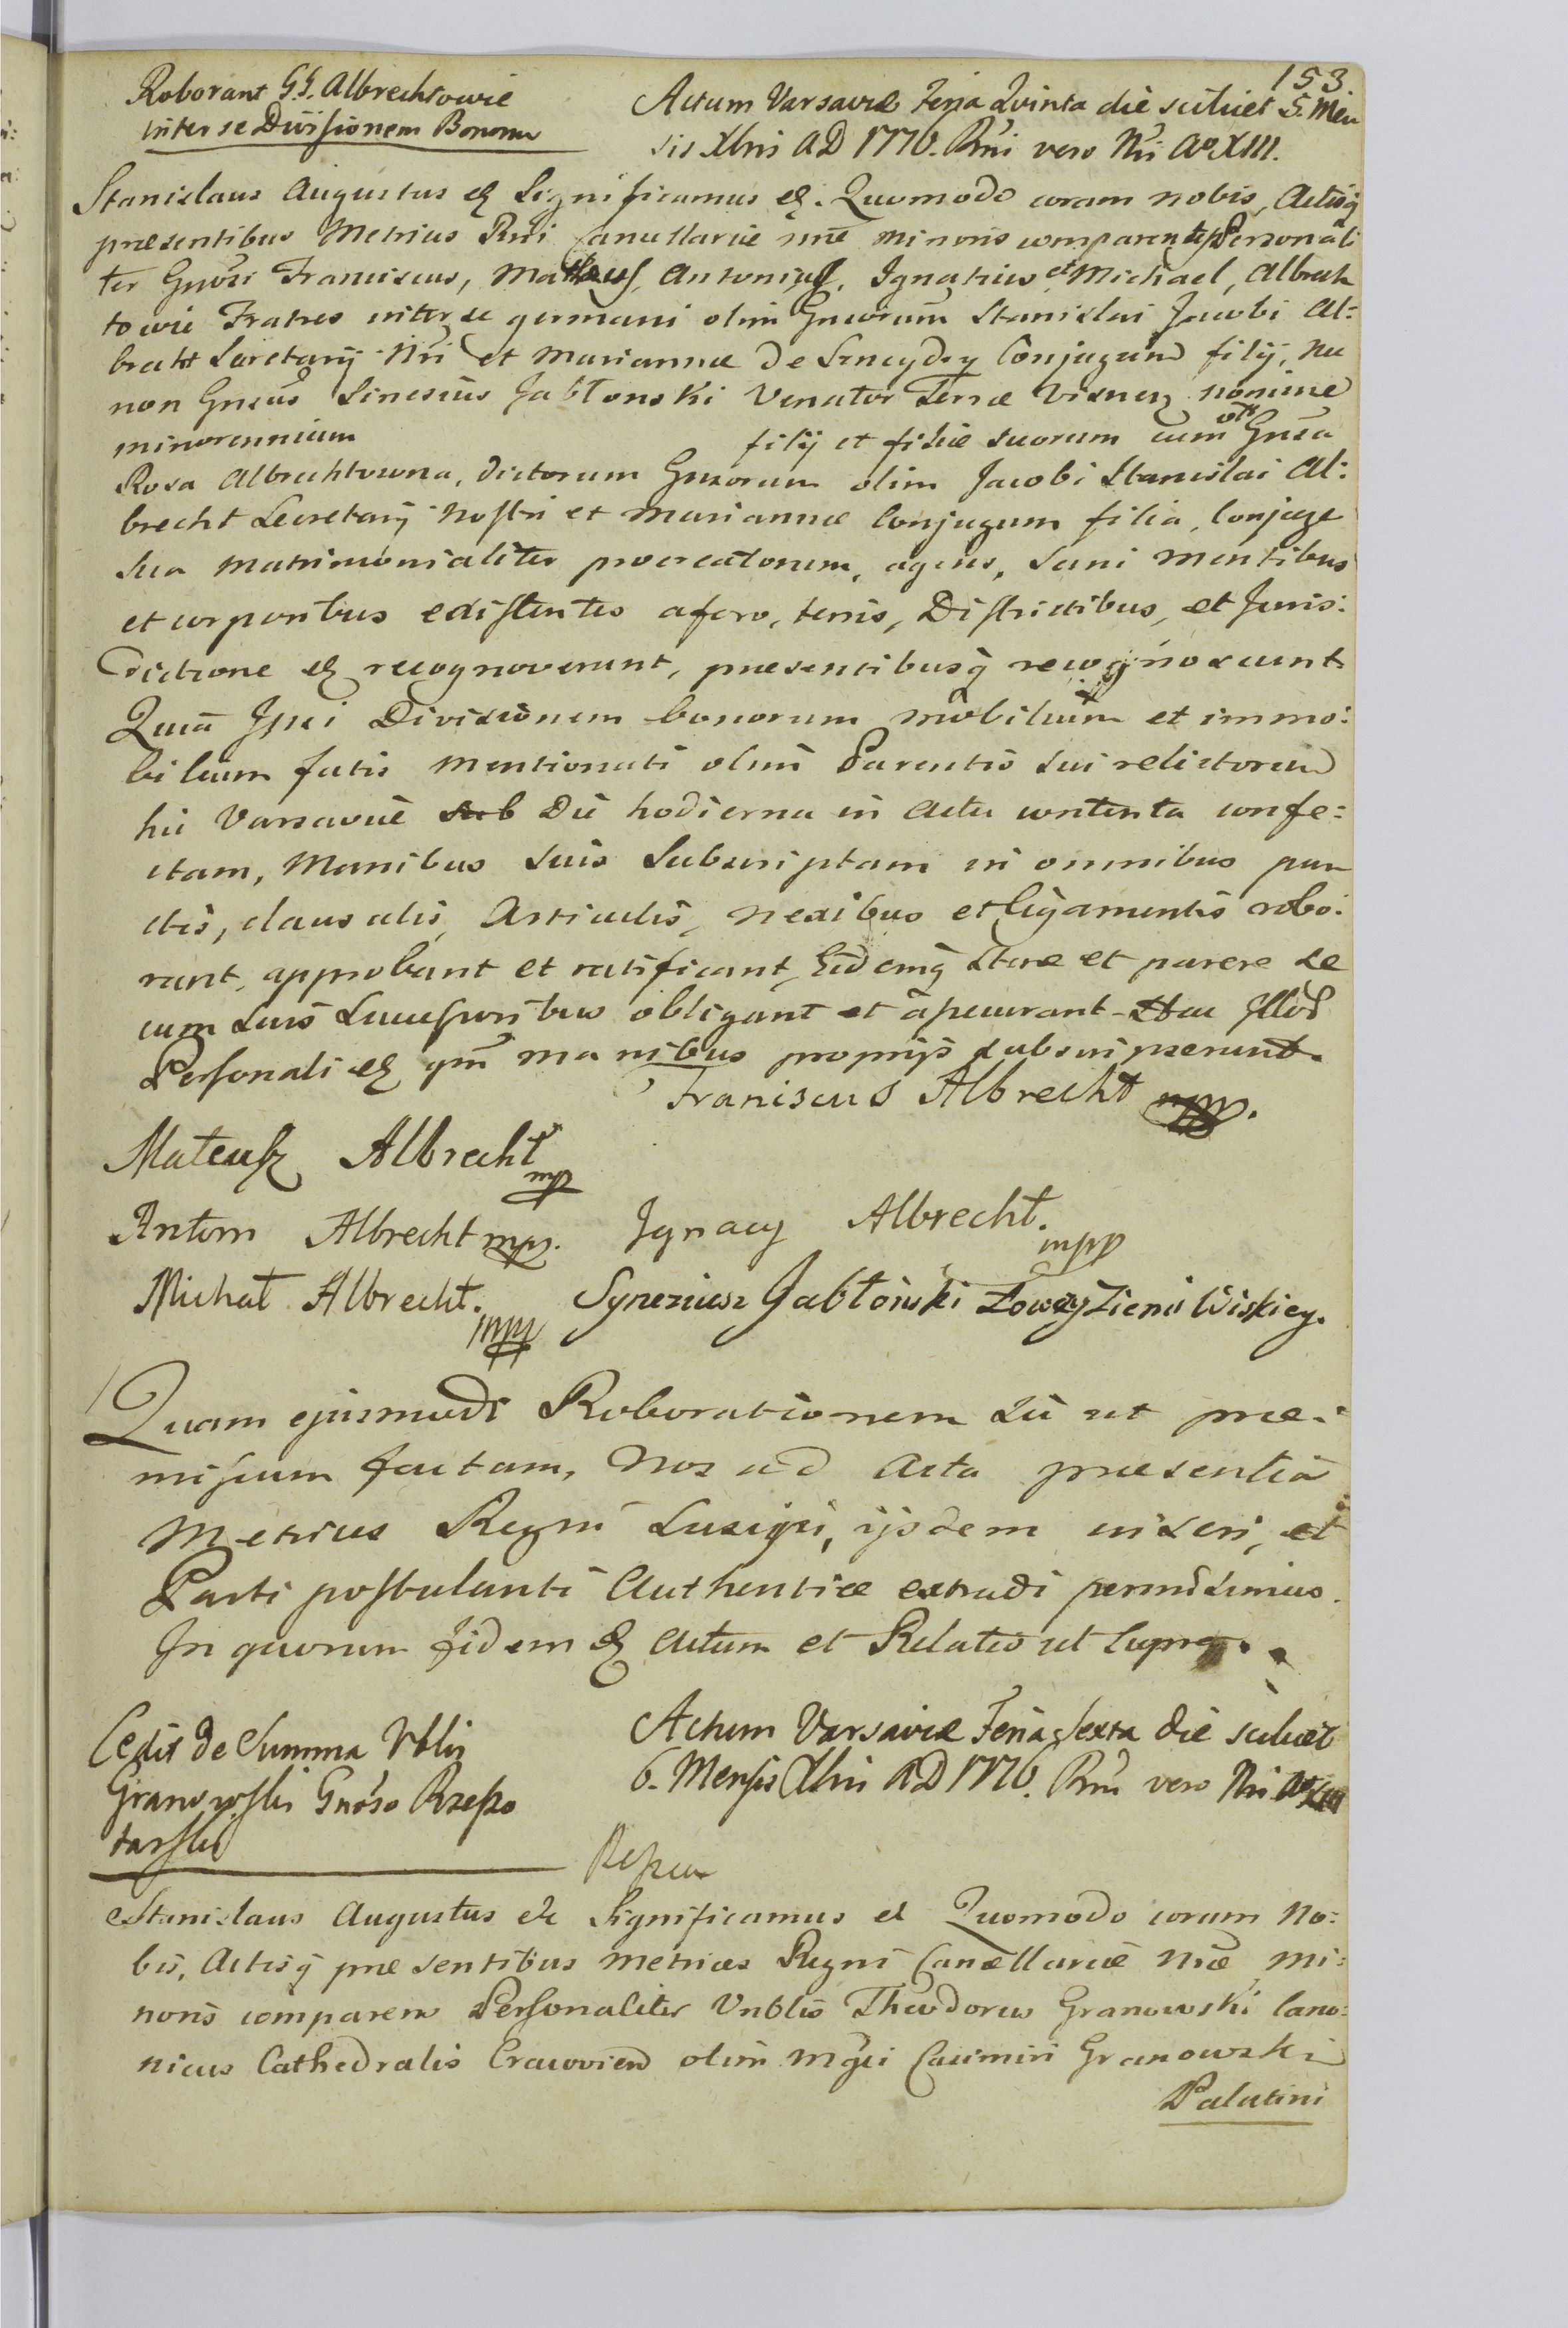 153
Roborant G.G. Albrechtowie
inter se Divisionem Bonorum
Actum Varsaviæ Feria Qvinta die scilicet 5. Men
sis Xbris AD 1776. Rni vero Nri Aº XIII.
Stanislaus Augustus &c Significamus &c. Quomodo coram nobis, Actisq
præsentibus Metrices Rni Cancellariæ nræ minoris comparentes Personali
ter Gnosi Franciscus, Matheus, Antonius, Ignatius et Michael, Albrech
towie Fratres inter se germani olim Gnosorum Stanislai Jacobi Al:
brecht Secretarij Nri et Mariannæ de Sznaydry Conjugum filij, nec
non Gnsus Sinesius Jabłonski Venator Terræ Visnen nomine
minorennium filij et filiæ suorum cum olim Gnsa
Rosa Albrechtowna, dictorum Gnsorum olim Jacobi Stanislai Al:
brecht Secretarij Nostri et Mariannæ Conjugum filia, Conjuge
sua matrimonialiter procreatorum, agens, sani mentibus
et corporibus existentes a foro, terris, Districtibus, et Juris:
dictione &c recognoverunt, præsentibusq recognoscunt
Quia Ipsi Divisionem bonorum mobilium et immo:
bilium fatis mentionati olim Parentis sui relictorum
hic Varsaviæ sub Die hodierna in Actu contenta confe:
ctam, Manibus suis Subscriptam in omnibus pun
ctis, clausulis, Articulis, nexibus et ligamentis robo:
rant, approbant et ratificant, Eidemq stare et parere se
cum suis Successoribus obligant et apcurant Hac Illos
Personali &c qm manibus proprijs subscripserunt.
Franiscus Albrecht mpp.
Mateusz Albrecht mp
Antoni Albrecht mpp. Jgnacy Albrecht. mpp
Michał Albrecht. mpp Syneziusz Jabłoński Łowczy Ziemi Wiskiey.
Quam ejusmodi Roborationem sic ut præ:
missum factam, Nos ad Acta præsentia
Metrices Regni Suscipi, ijsdem inseri, et
Parti postulanti Authentice extradi permisimus.
In quorum fidem &c Actum et Relatio ut supra.
Cedit de Summa Vblis
Granowski Gnoso Rzeszo
tarski
Actum Varsaviæ Feria Sexta die scilicet
6. Mensis Xbris AD 1776. Rni vero Nri Aº XIII
Stanislaus Augustus &c Significamus &c Quomodo coram No:
bis, Actisq præsentibus Metrices Regni Cancellariæ Nræ Mi:
noris comparens Personaliter Vrblis Theodorus Granowski Cano:
nicus Cathedralis Cracovien olim Mgci Casimiri Granowski
Palatini